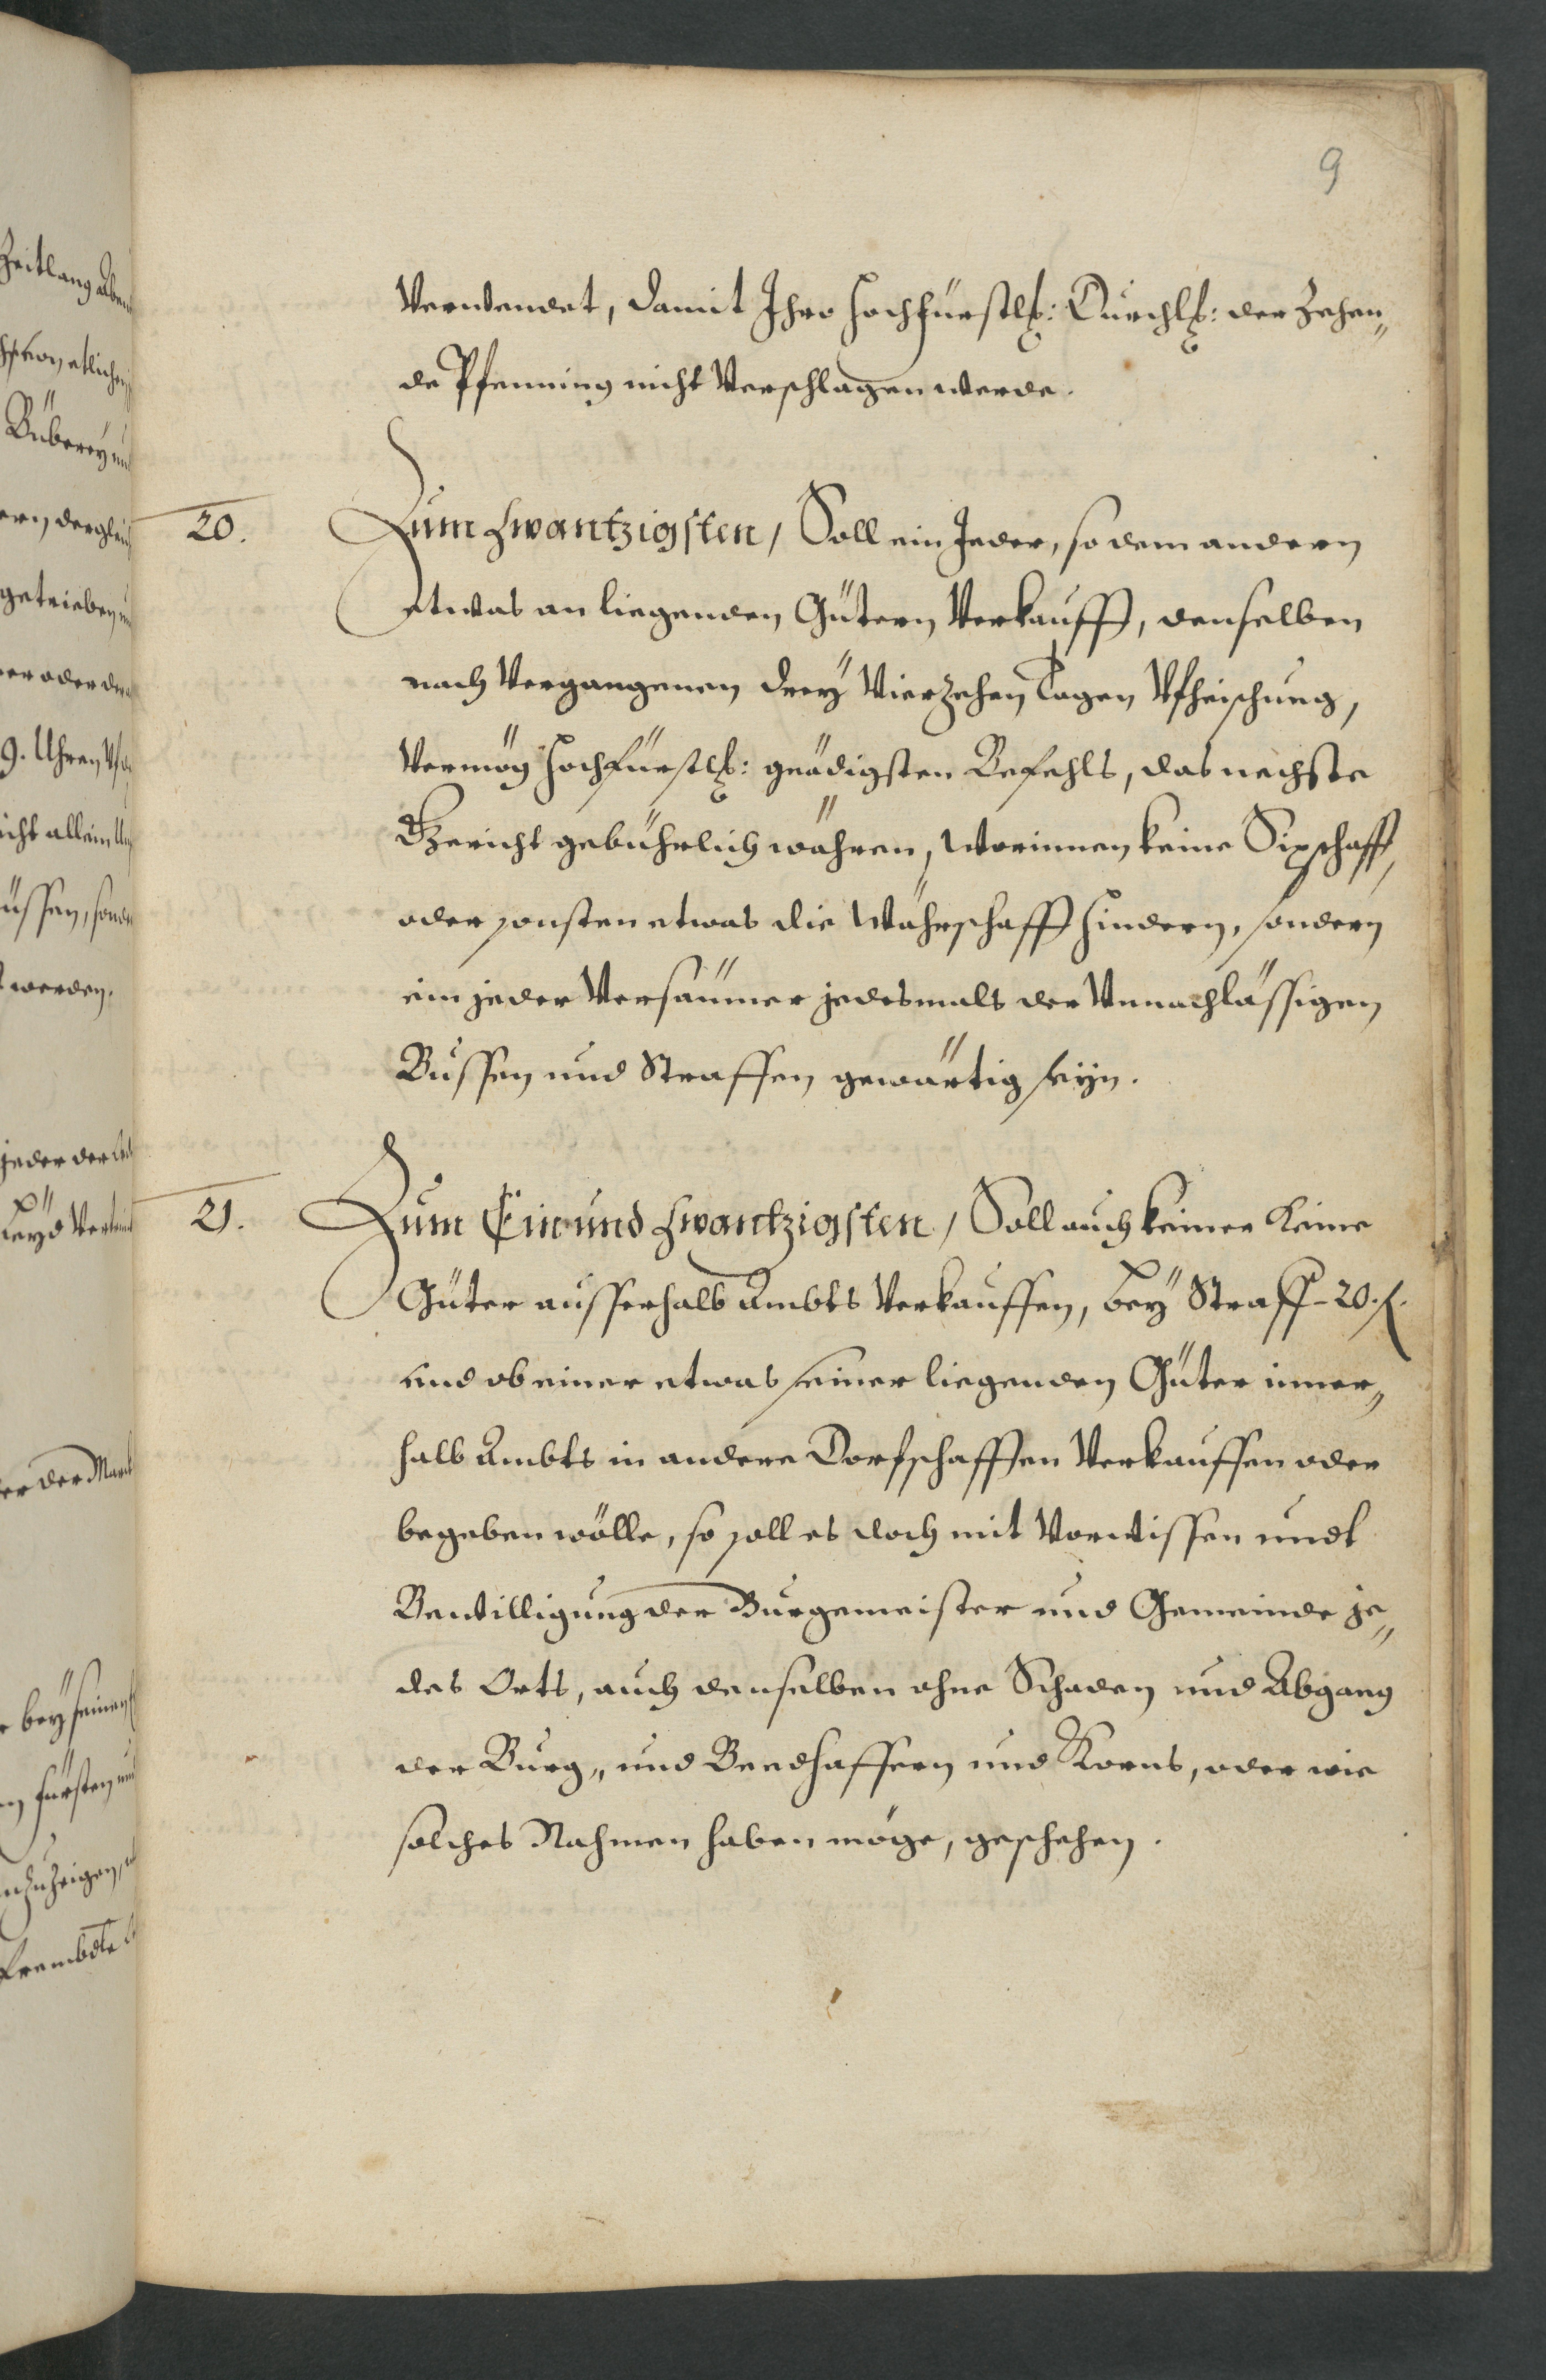 9
Verwendet, damit Ihro hochfürstl: Durchl: der Zehen„
de Pfenning nicht Verschlagen werde.
20. Zum Zwantzigsten, Soll ein Jeder, so dem andern
etwas an liegenden Gütern Verkaufft, denselben
nach Vergangenen drey Vierzehen Tagen Vfheischung,
Vermög hochfürstl: gnädigsten Befehls, das nechste
Gericht gebührlich währen, worinnen keine Sipschafft,
oder sonsten etwas die Währschafft hindern, sondern
ein jeder Versäumer jedesmals der Vnnachlässigen
Bussen und Straffen gewärtig seÿn.
21. Zum Ein und Zwantzigsten, Soll auch keiner keine
Güter ausserhalb Ambts Verkauffen, beÿ Straff 20. f.
und ob einer etwas seiner liegenden Güter inner„
halb Ambts in andere Dorfschafften Verkauffen oder
begeben wölle, so soll es doch mit Vorwissen undt
Bewilligung der Burgemeister und Gemeinde je„
des Orts, auch denselben ohne Schaden und Abgang
der Burg„ und Beedhaffern und Korns, oder wie
solches Nahmen haben möge, geschehen.